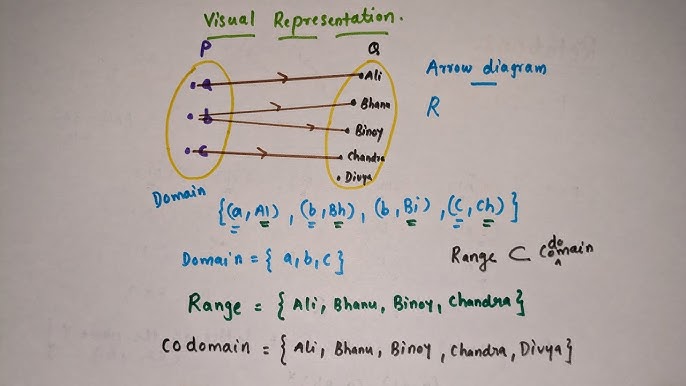 Visual Representation.
P
Q
a
b
c
Ali
Bhanu
Binoy
Chandra
Divya
Arrow diagram
R
Domain
{(a, Al) , (b, Bh) , (b, Bi) , (C, Ch)}
Domain = { a, b, c }
Range ⊂ Codomain
Range = { Ali, Bhanu, Binoy, Chandra }
codomain = { Ali, Bhanu, Binoy, Chandra, Divya }